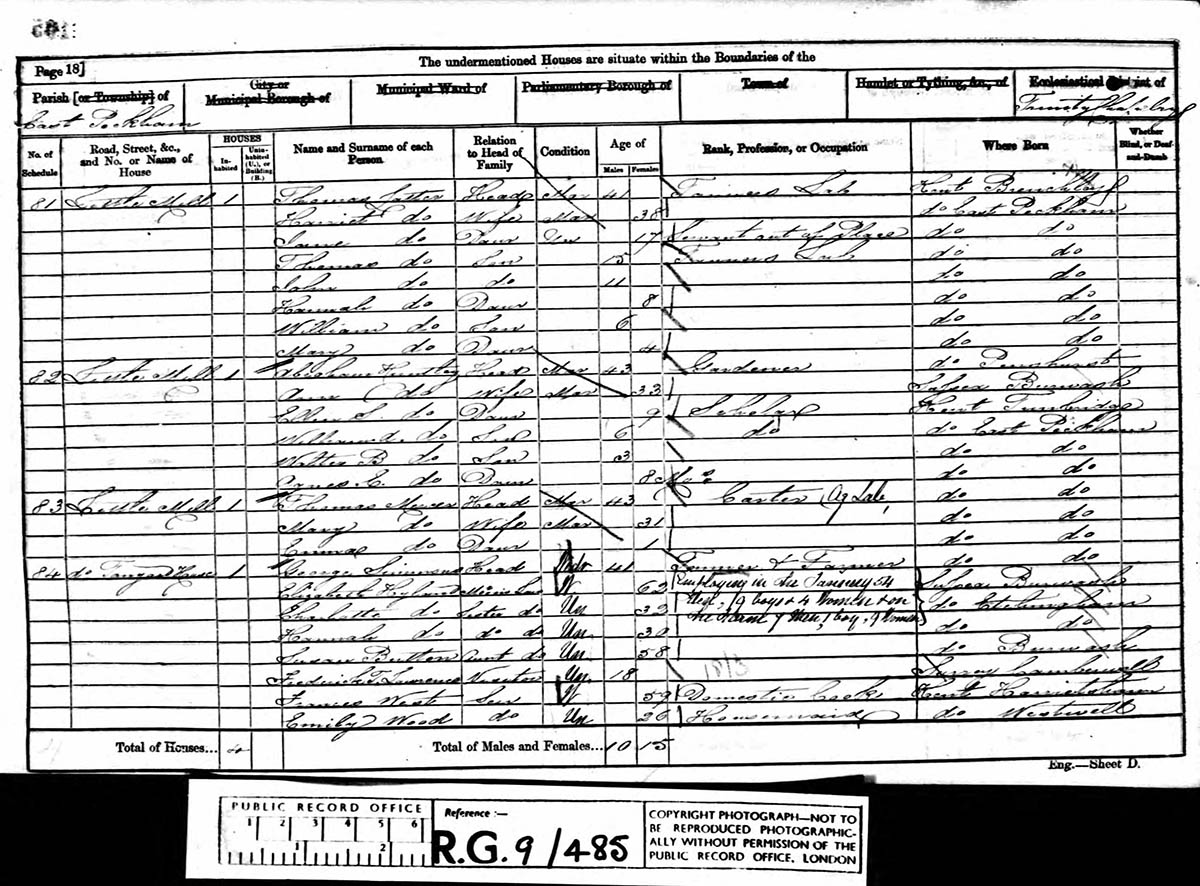 The undermentioned Houses are situate within the Boundaries of the
Page 18]
Parish [or Township] of
City or Municipal Borough of
Municipal Ward of
Parliamentary Borough of
Town of
Hamlet or Tything, &c., of
Ecclesiastical District of
East Peckham
Trinity
No. of Schedule
Road, Street, &c., and No. or Name of House
HOUSES
Inhabited
Uninhabited (U.), or Building (B.)
Name and Surname of each Person
Relation to Head of Family
Condition
Age of
Males
Females
Rank, Profession, or Occupation
Where Born
Whether Blind, or Deaf-and-Dumb
81 Little Mill 1 Thomas Head Mar 41 Lab Kent Brenchley
Harriet do Wife Mar 38 do East Peckham
Jane do Daur Un 17 Servant out of Place do do
Thomas do Son 15 Lab do do
John do do 11 do do
Hannah do Daur 8 do do
William do Son 6 do do
Mary do Daur 4 do do
82 Little Mill 1 Abraham Huntley Head Mar 43 Gardener do Penshurst
Ann do Wife Mar 33 Sussex Burwash
Ellen S. do Daur 9 Scholar Kent Tunbridge
William do Son 6 do do East Peckham
Walter B do Son 3 do do
Agnes E. do Daur 8 Mos do do
83 Little Mill 1 Thomas Head Mar 43 Carter (Ag Lab, do do
Mary do Wife Mar 31 do do
Emma do Daur 1 do do
84 do House 1 George Simmons Head Widr 41 Tanner & Farmer do do
Elizabeth W 62 Employing in the Tannery 54 Sussex Burwash
Charlotte do Sister do Un 32 Men, 19 boys & 4 Women & on do Etchingham
Hannah do do do Un 30 the Farm 7 Men, 1 boy, 9 Women do do
Susan Button Aunt do Un 58 do Burwash
Fredrick T. Lawrence Visitor Un 18 Surrey Camberwell
Frances West Serv W 59 Domestic Cook Kent
Emily Wood do Un 26 Housemaid do Westwell
Total of Houses... 4
Total of Males and Females... 10 15
Eng.—Sheet D.
PUBLIC RECORD OFFICE
1 2 3 4 5 6
1 2
Reference :—
R.G. 9/485
COPYRIGHT PHOTOGRAPH—NOT TO
BE REPRODUCED PHOTOGRAPHIC-
ALLY WITHOUT PERMISSION OF THE
PUBLIC RECORD OFFICE, LONDON